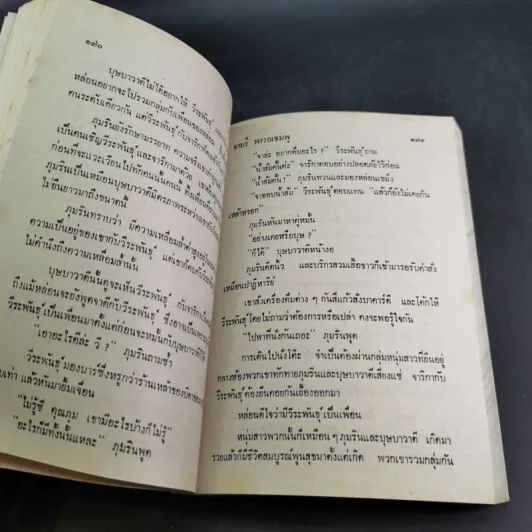 ๑๗๐
บุษบาวาตีไม่ได้อยากให้ วีระพันธุ์
หล่อนอยากจะไปรวมกลุ่มกับเพื่อนของหล่อน
คนระดับเดียวกัน แต่วีระพันธุ์กับจาริกา
ภุมรินยังรักษามารยาท ความจริง
เป็นคนเชิญวีระพันธุ์และจาริกามาด้วย
ก่อนที่จะแวะเวียนไปทักคนนั้นคนนี้
ภุมรินเป็นเหมือนบุษบาวาตีมิตรภาพระหว่างเขา
ไม่ยืนยาวมาถึงขนาดนี้
ภุมรินทราบว่า มีความเหลื่อมล้ำ
ความเป็นอยู่ของเขากับวีระพันธุ์ แต่เขา
ไม่คำนึงถึงความเหลื่อมล้ำนั้น
บุษบาวาตีนั้นดูจะเห็นวีระพันธุ์ กับจาริกา
ถึงแม้หล่อนจะยังพูดจาดีกับวีระพันธุ์ ซึ่งอาจเป็น
วีระพันธุ์ เป็นเพื่อนมาตั้งแต่ก่อนจะหมั้นกับบุษบาวาตี
"เอาอะไรดีล่ะ วี ?" ภุมรินถามซ้ำ
วีระพันธุ์ มองบาร์ซึ่งหรูกว่าร้านเหล้าของ
เท่า แล้วหันมายิ้มเจื่อน
"ไม่รู้ซี คุณภุม เขามีอะไรบ้างก็ไม่รู้"
"อะไรก็มีทั้งนั้นแหละ" ภุมรินพูด
จามรี พรรณชมพู
๑๗๑
"จาล่ะ อยากดื่มอะไร ?" วีระพันธุ์ ถาม
"น้ำส้มค้นค่ะ" จาริกาตอบอย่างปลอดภัยไว้ก่อน
"น้ำส้มคั้น !" ภุมรินทวนและมองหล่อนเขม็ง
"จาชอบน้ำส้ม" วีระพันธุ์ตอบแทน "แล้วก็ยังไม่เคยกิน
เหล้าหรอก"
ภุมรินหันมาหาคู่หมั้น
"อย่างเคยหรือบุษ ?"
"ก็ได้" บุษบาวาตีหน้างอ
ภุมรินดีดนิ้ว และบริกรสวมเสื้อขาวก็เข้ามารอรับคำสั่ง
เหมือนปาฏิหาริย์
เขาสั่งเครื่องดื่มต่าง ๆ กันสี่แก้วสั่งบาคาร์ดี และโค้กให้
วีระพันธุ์โดยไม่ถามว่าต้องการหรือเปล่า คงจะพอรู้ใจกัน
"ไปหาที่นั่งกันเถอะ" ภุมรินพูด
การเดินไปนั่งโต๊ะ จำเป็นต้องผ่านกลุ่มหนุ่มสาวที่ยืนอยู่
กลางห้องพวกเขาทักทายภุมรินและบุษบาวาตีเสียงแซ่ จาริกากับ
วีระพันธุ์ ต้องยืนคอยกันเยื้องออกมา
หล่อนดีใจว่ามีวีระพันธุ์ เป็นเพื่อน
หนุ่มสาวพวกนั้นก็เหมือนๆ ภุมรินและบุษบาวาตี เกิดมา
รวยแล้วก็มีชีวิตสมบูรณ์พูนสุขมาตั้งแต่เกิด พวกเขารวมกลุ่มกัน